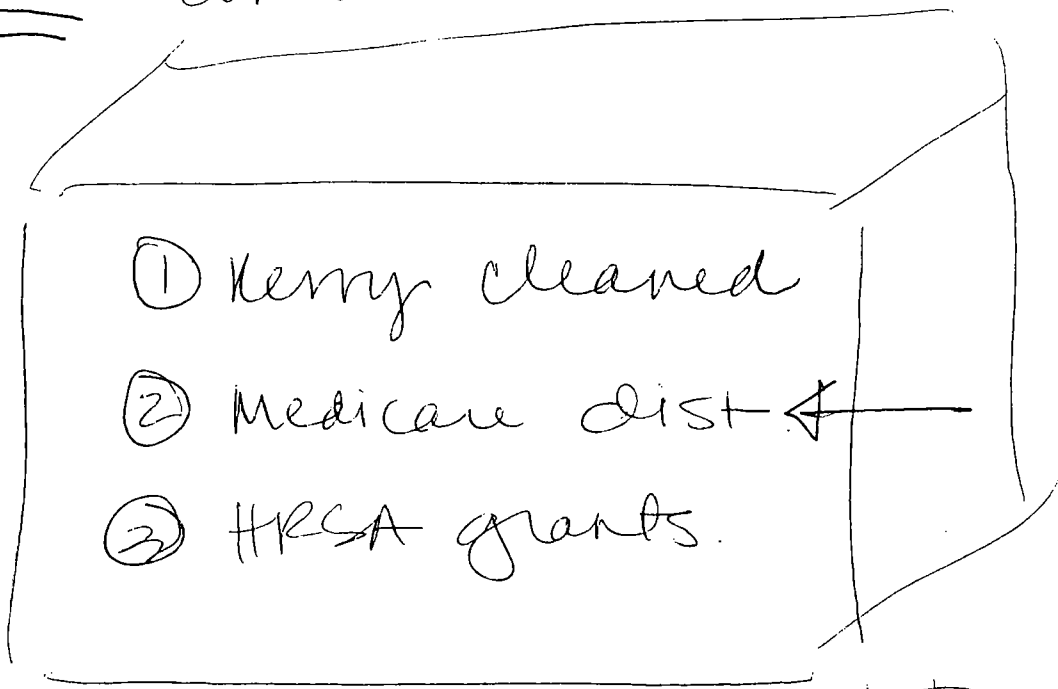 ① Kerry cleared
② Medicare dist
③ HRSA grants.